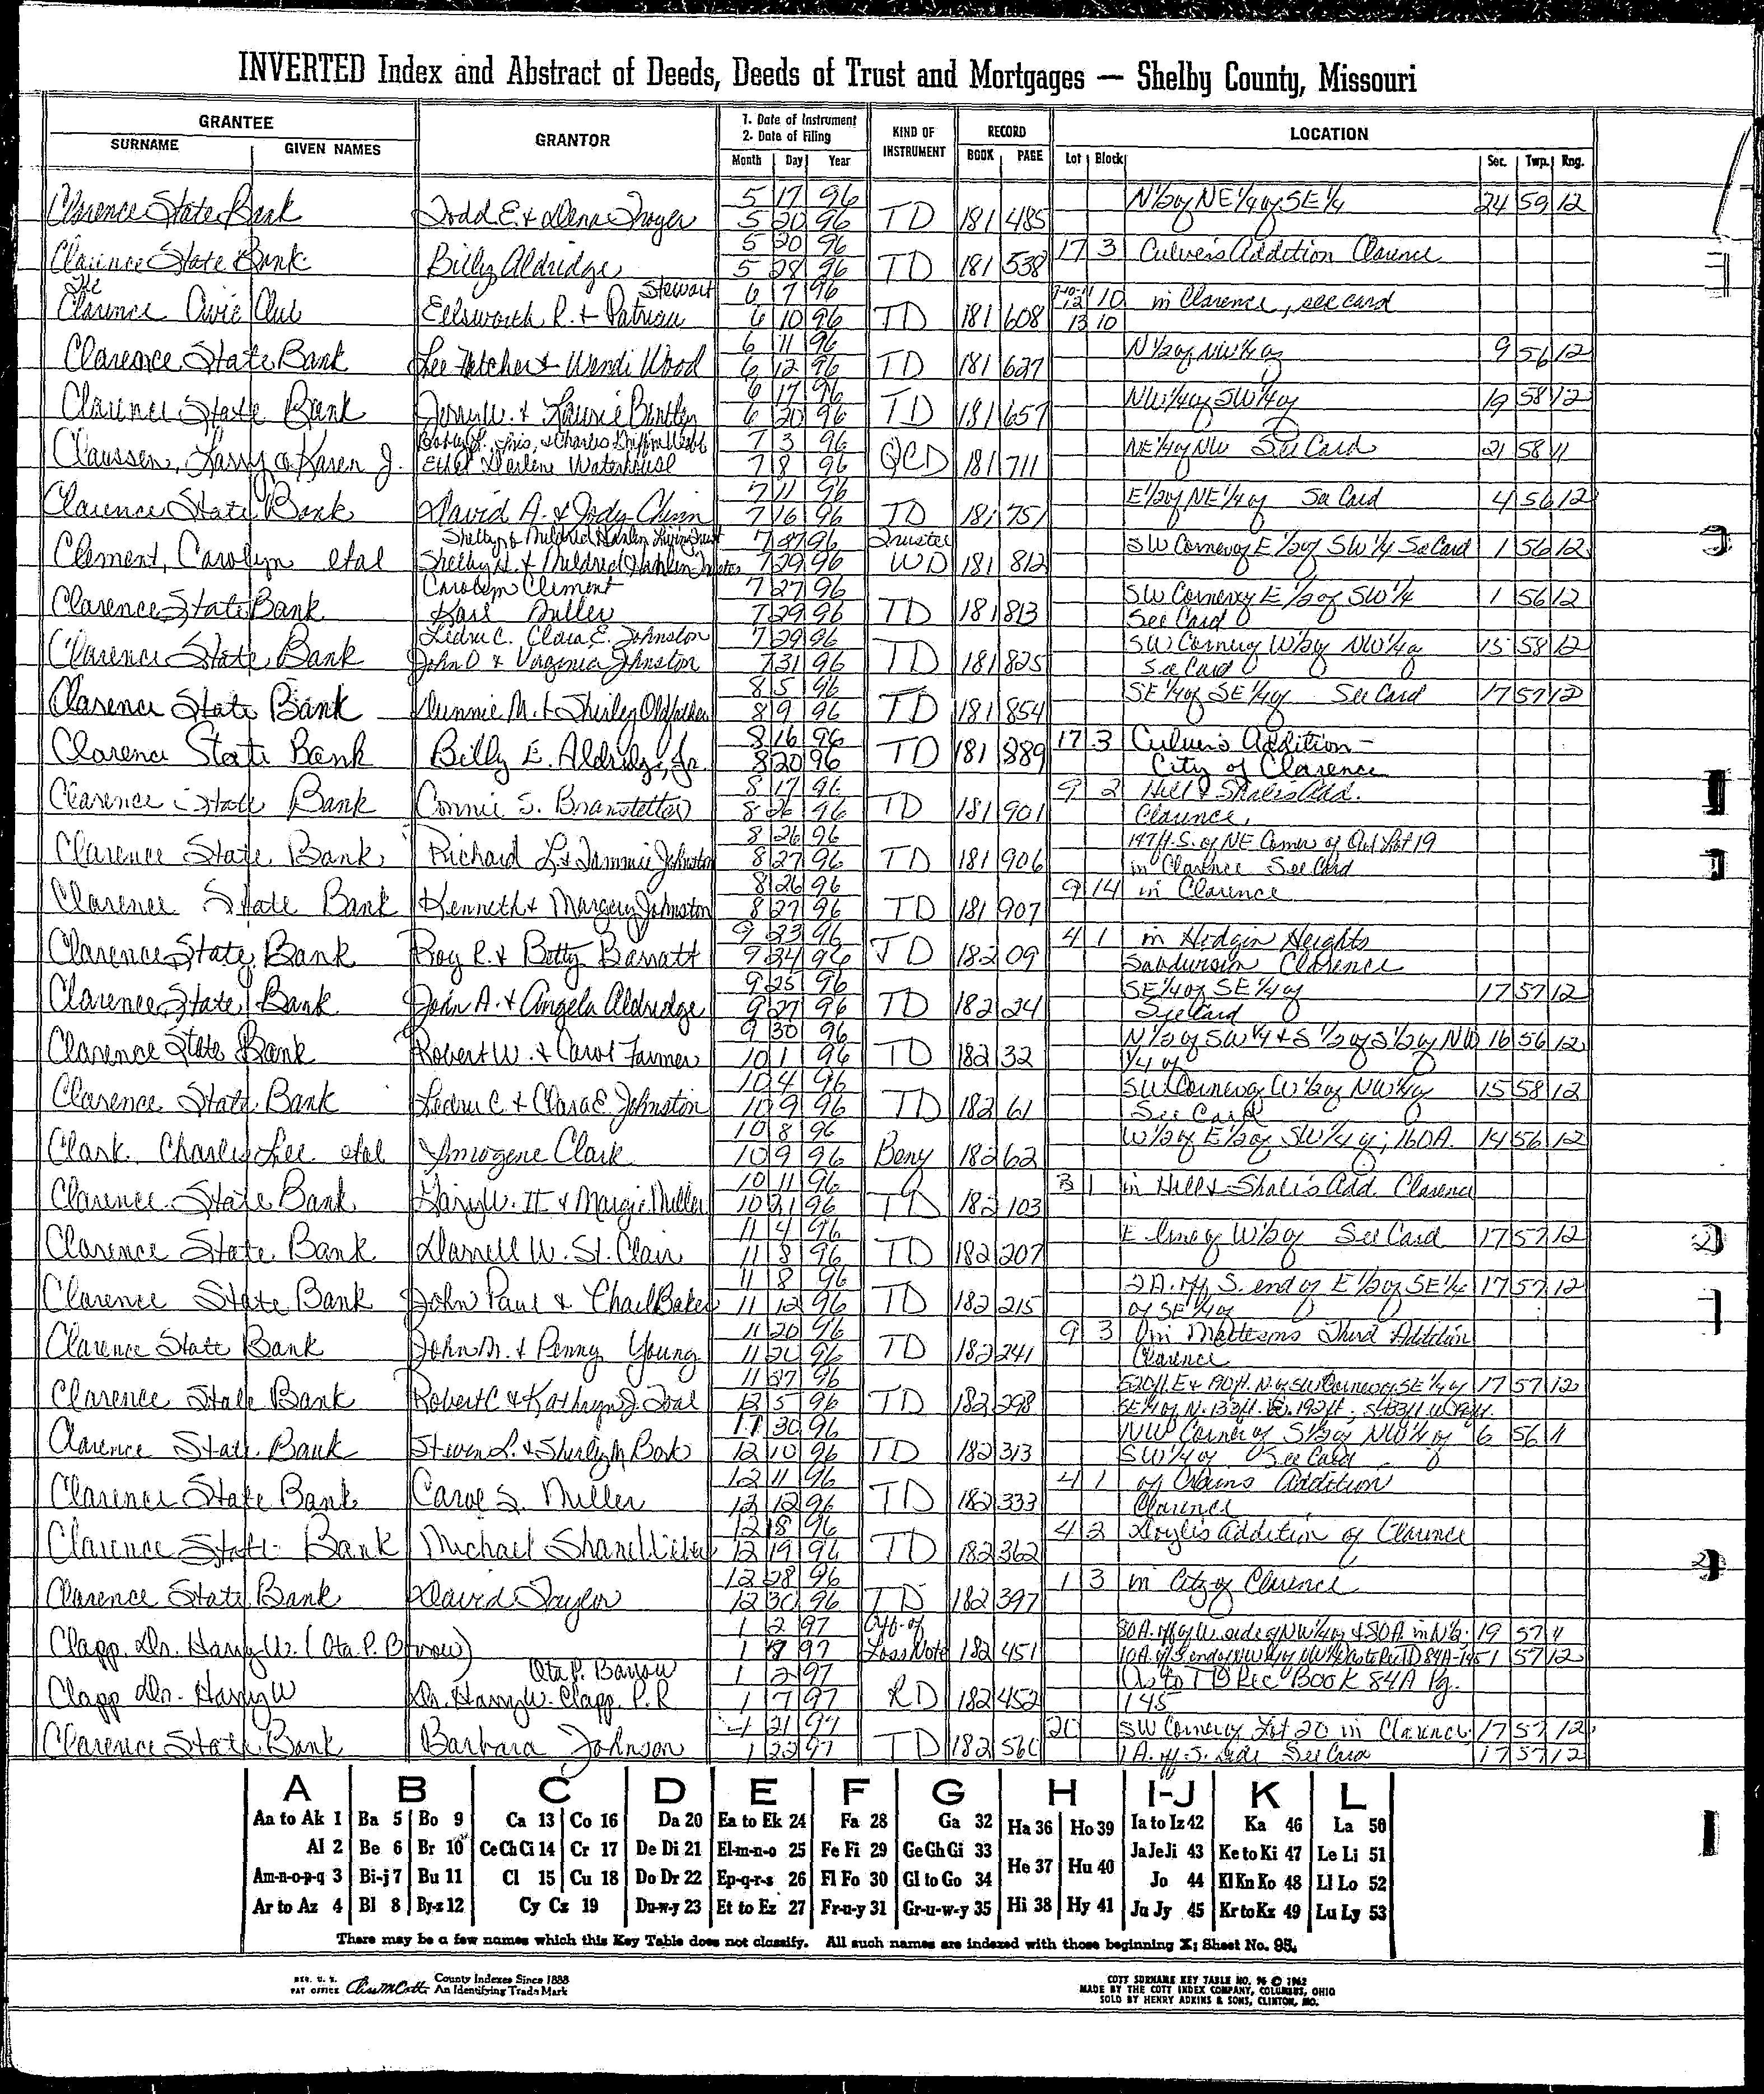 INVERTED Index and Abstract of Deeds, Deeds of Trust and Mortgages — Shelby County, Missouri
GRANTEE
SURNAME GIVEN NAMES GRANTOR 1. Date of Instrument 2. Date of Filing Month Day Year KIND OF INSTRUMENT RECORD BOOK PAGE LOCATION Lot Block Sec. Twp. Rng.
5 17 96 N 1/2 of NE 1/4 of SE 1/4 24 59 12
Clarence State Bank Todd E. & Dena Troyer 5 20 96 TD 181 485
5 20 96 17 3 Culver's Addition Clarence
Clarence State Bank Billy Aldridge 5 28 96 TD 181 538
The Stewart 6 7 96 9-10-11 12 10 in Clarence, see card
Clarence Civic Club Ellsworth R. & Patricia 6 10 96 TD 181 608 13 10
6 11 96 N 1/2 of NW 1/4 of 9 56 12
Clarence State Bank Lee Fletcher & Wendi Wood 6 12 96 TD 181 627
6 17 96 NW 1/4 of SW 1/4 of 19 58 12
Clarence State Bank Jerry W. & Laurie Bentley 6 20 96 TD 181 657
7 3 96 NE 1/4 of NW See Card 21 58 11
Claussen, Larry & Karen J. Ethel Darlene Waterhouse 7 8 96 QCD 181 711
7 11 96 E 1/2 of NE 1/4 of See Card 4 56 12
Clarence State Bank David A. & Jody Chinn 7 16 96 TD 181 751
Shelby & Mildred Hanlin Living Trust 7 27 96 Trustee SW Corner of E 1/2 of SW 1/4 See Card 1 56 12
Clement, Carolyn etal Shelby H. & Mildred Hanlin Trustee 7 29 96 WD 181 812
Carolyn Clement 7 27 96 SW Corner of E 1/2 of SW 1/4 1 56 12
Clarence State Bank Karl Miller 7 29 96 TD 181 813 See Card
Ledru C. Clara E. Johnston 7 29 96 SW Corner of W 1/2 of NW 1/4 of 15 58 12
Clarence State Bank John D & Virginia Johnston 7 31 96 TD 181 825 See Card
8 5 96 SE 1/4 of SE 1/4 of See Card 17 57 12
Clarence State Bank Dunnie M. & Shirley Oldfather 8 9 96 TD 181 854
8 16 96 17 3 Culver's Addition -
Clarence State Bank Billy E. Aldridge, Jr. 8 20 96 TD 181 889 City of Clarence
8 17 96 9 2 Hill & Shale's Add.
Clarence State Bank Connie S. Branstetter 8 26 96 TD 181 901 Clarence,
8 26 96 147 ft. S. of NE Corner of Out Lot 19
Clarence State Bank Richard L & Tammie Johnston 8 27 96 TD 181 906 in Clarence See Card
8 26 96 9 14 in Clarence
Clarence State Bank Kenneth & Margery Johnston 8 27 96 TD 181 907
9 23 96 4 1 in Hodgin Heights
Clarence State Bank Roy R. & Betty Barratt 9 24 96 TD 182 09 Subdivision Clarence
9 25 96 SE 1/4 of SE 1/4 of 17 57 12
Clarence State Bank John A. & Angela Aldridge 9 27 96 TD 182 24 See Card
9 30 96 N 1/2 of SW 1/4 & S 1/2 of S 1/2 of NW 16 56 12
Clarence State Bank Robert W. & Carol Farmer 10 1 96 TD 182 32 1/4 of
10 4 96 SW Corner of W 1/2 of NW 1/4 of 15 58 12
Clarence State Bank Ledru C. & Clara E. Johnston 10 9 96 TD 182 61 See Card
10 8 96 W 1/2 of E 1/2 of SW 1/4 of; 160A. 14 56 12
Clark Charles Lee etal Imogene Clark 10 9 96 Beny 182 62
10 11 96 3 1 in Hill & Shale's Add. Clarence
Clarence State Bank Gary W. II & Margie Miller 10 21 96 TD 182 103
11 4 96 E line of W 1/2 of See Card 17 57 12
Clarence State Bank Darnell W. St. Clair 11 8 96 TD 182 207
11 8 96 2 A. off S. end of E 1/2 of SE 1/4 17 57 12
Clarence State Bank John Paul & Baker 11 12 96 TD 182 215 of SE 1/4 of
11 20 96 9 3 Third Addition
Clarence State Bank John M. & Penny Young 11 21 96 TD 182 241 Clarence
11 27 96 520 ft. E & 190 ft. N. of SW Corner of SE 1/4 of 17 57 12
Clarence State Bank Robert C & Kathryn J. Toal 12 5 96 TD 182 298 SE 1/4 of N. 133 ft. E. 192 ft;
11 30 96 NW Corner of S 1/2 of NW 1/4 of 6 56 11
Clarence State Bank Steven L. & Shirley M Bork 12 10 96 TD 182 313 SW 1/4 of See Card
12 11 96 4 1 of Crains Addition
Clarence State Bank Carol S. Miller 12 12 96 TD 182 333 Clarence
12 18 96 4 2 Doyle's Addition of Clarence
Clarence State Bank Michael 12 19 96 TD 182 362
12 28 96 1 3 in City of Clarence
Clarence State Bank David Taylor 12 30 96 TD 182 397
1 2 97 Aff. of 80A. off of W. side of NW 1/4 of & 80A in N 1/2 19 57 11
Clapp, Dr. Harry W. (Ota P. Barrow) 1 7 97 Loss Note 182 451 1 57 12
Ota P. Barrow 1 2 97 As to TD Rec Book 84A Pg.
Clapp Dr. Harry W Dr. Harry W. Clapp P.R 1 7 97 RD 182 452 145
1 21 97 20 SW Corner of Lot 20 in Clarence 17 57 12
Clarence State Bank Barbara Johnson 1 22 97 TD 182 560 1 A. off S. side See Card 17 57 12
A B C D E F G H I-J K L
Aa to Ak 1 Ba 5 Bo 9 Ca 13 Co 16 Da 20 Ea to Ek 24 Fa 28 Ga 32 Ha 36 Ho 39 Ia to Iz 42 Ka 46 La 50
Al 2 Be 6 Br 10 Ce Ch Ci 14 Cr 17 De Di 21 El-m-n-o 25 Fe Fi 29 Ge Gh Gi 33 He 37 Hu 40 Ja Je Ji 43 Ke to Ki 47 Le Li 51
Am-n-o-p-q 3 Bi-j 7 Bu 11 Cl 15 Cu 18 Do Dr 22 Ep-q-r-s 26 Fl Fo 30 Gl to Go 34 Jo 44 Kl Kn Ko 48 Ll Lo 52
Ar to Az 4 Bl 8 By-z 12 Cy Cz 19 Du-w-y 23 Et to Ez 27 Fr-u-y 31 Gr-u-w-y 35 Hi 38 Hy 41 Ju Jy 45 Kr to Kz 49 Lu Ly 53
There may be a few names which this Key Table does not classify. All such names are indexed with those beginning X; Sheet No. 95.
REG. U. S. PAT OFFICE County Indexes Since 1888 An Identifying Trade Mark
COTT SURNAME KEY TABLE NO. 96 © 1962
MADE BY THE COTT INDEX COMPANY, COLUMBUS, OHIO
SOLD BY HENRY ADKINS & SONS, CLINTON, MO.